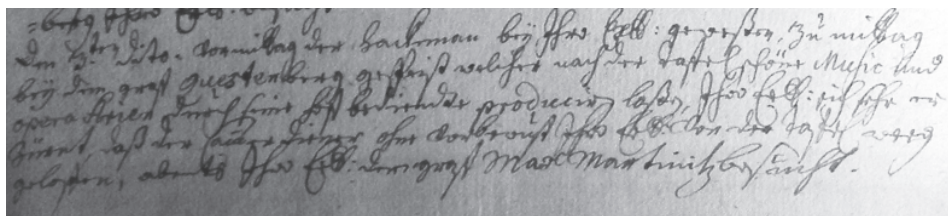 =berg Ihro Exll: besucht
den 3.ten dito. vormittag der Hackeman bey Ihro Exll: gewesten, zu mittag
bey dem graf Questenberg gespeist welcher nach der taffel schöne Music und
opera Arien durch seine hoff bediendte produciren lassen, Ihro Exll: sich sehr er
zürnt, daß der Cammerdiener ohne vorbewust Ihro Exll: von der taffel weeg
geloffen, abents Ihro Exll: den graf Max Martinitz besucht.